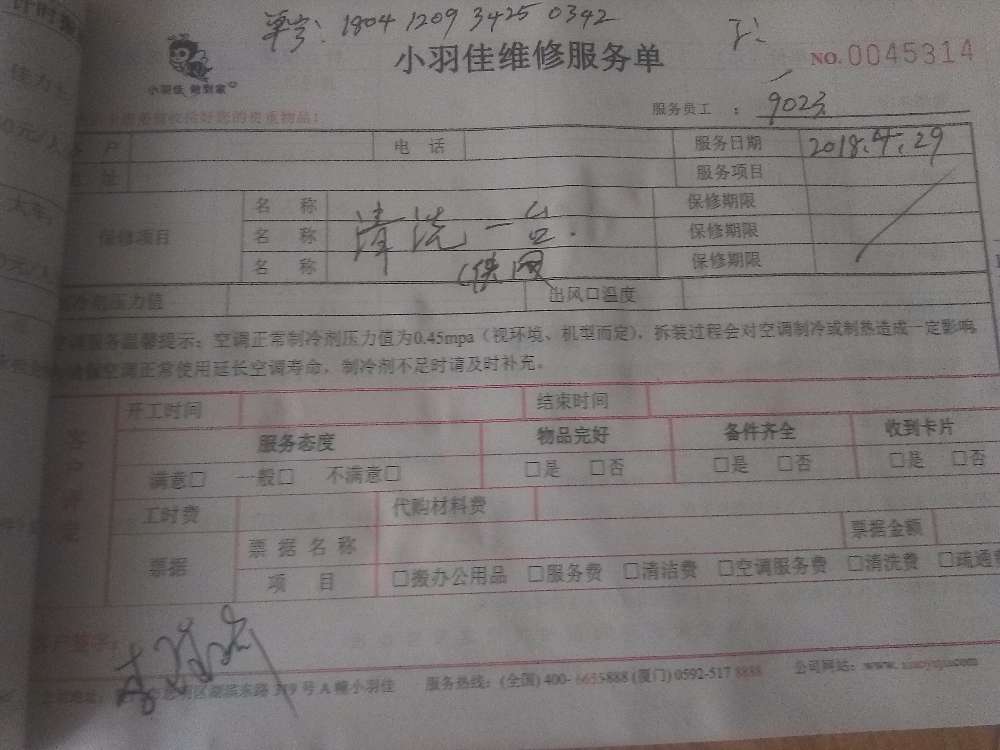 单字: 1804 1209 3425 0342
小羽佳 做到家
小羽佳维修服务单
NO. 0045314
服务员工 : 9023
收好您的贵重物品!
户 电 话 服务日期 2018.4.29
址 服务项目
保修项目 名 称 清洗一台. 保修期限
名 称 保修期限
名 称 (铁网 保修期限
冷剂压力值 出风口温度
空调服务温馨提示:空调正常制冷剂压力值为0.45mpa(视环境、机型而定),拆装过程会对空调制冷或制热造成一定影响
空调正常使用延长空调寿命,制冷剂不足时请及时补充。
客户评定
开工时间 结束时间
服务态度 物品完好 备件齐全 收到卡片
满意□ 一般□ 不满意□ □是 □否 □是 □否 □是 □否
工时费 代购材料费
票据 票 据 名 称 票据金额
项 目 □搬办公用品 □服务费 □清洁费 □空调服务费 □清洗费 □疏通费
客户签字:
明区湖滨东路 319 号 A 幢小羽佳 服务热线:(全国) 400-6655888 (厦门) 0592-517 8888 公司网站:www.xiaoyujia.com